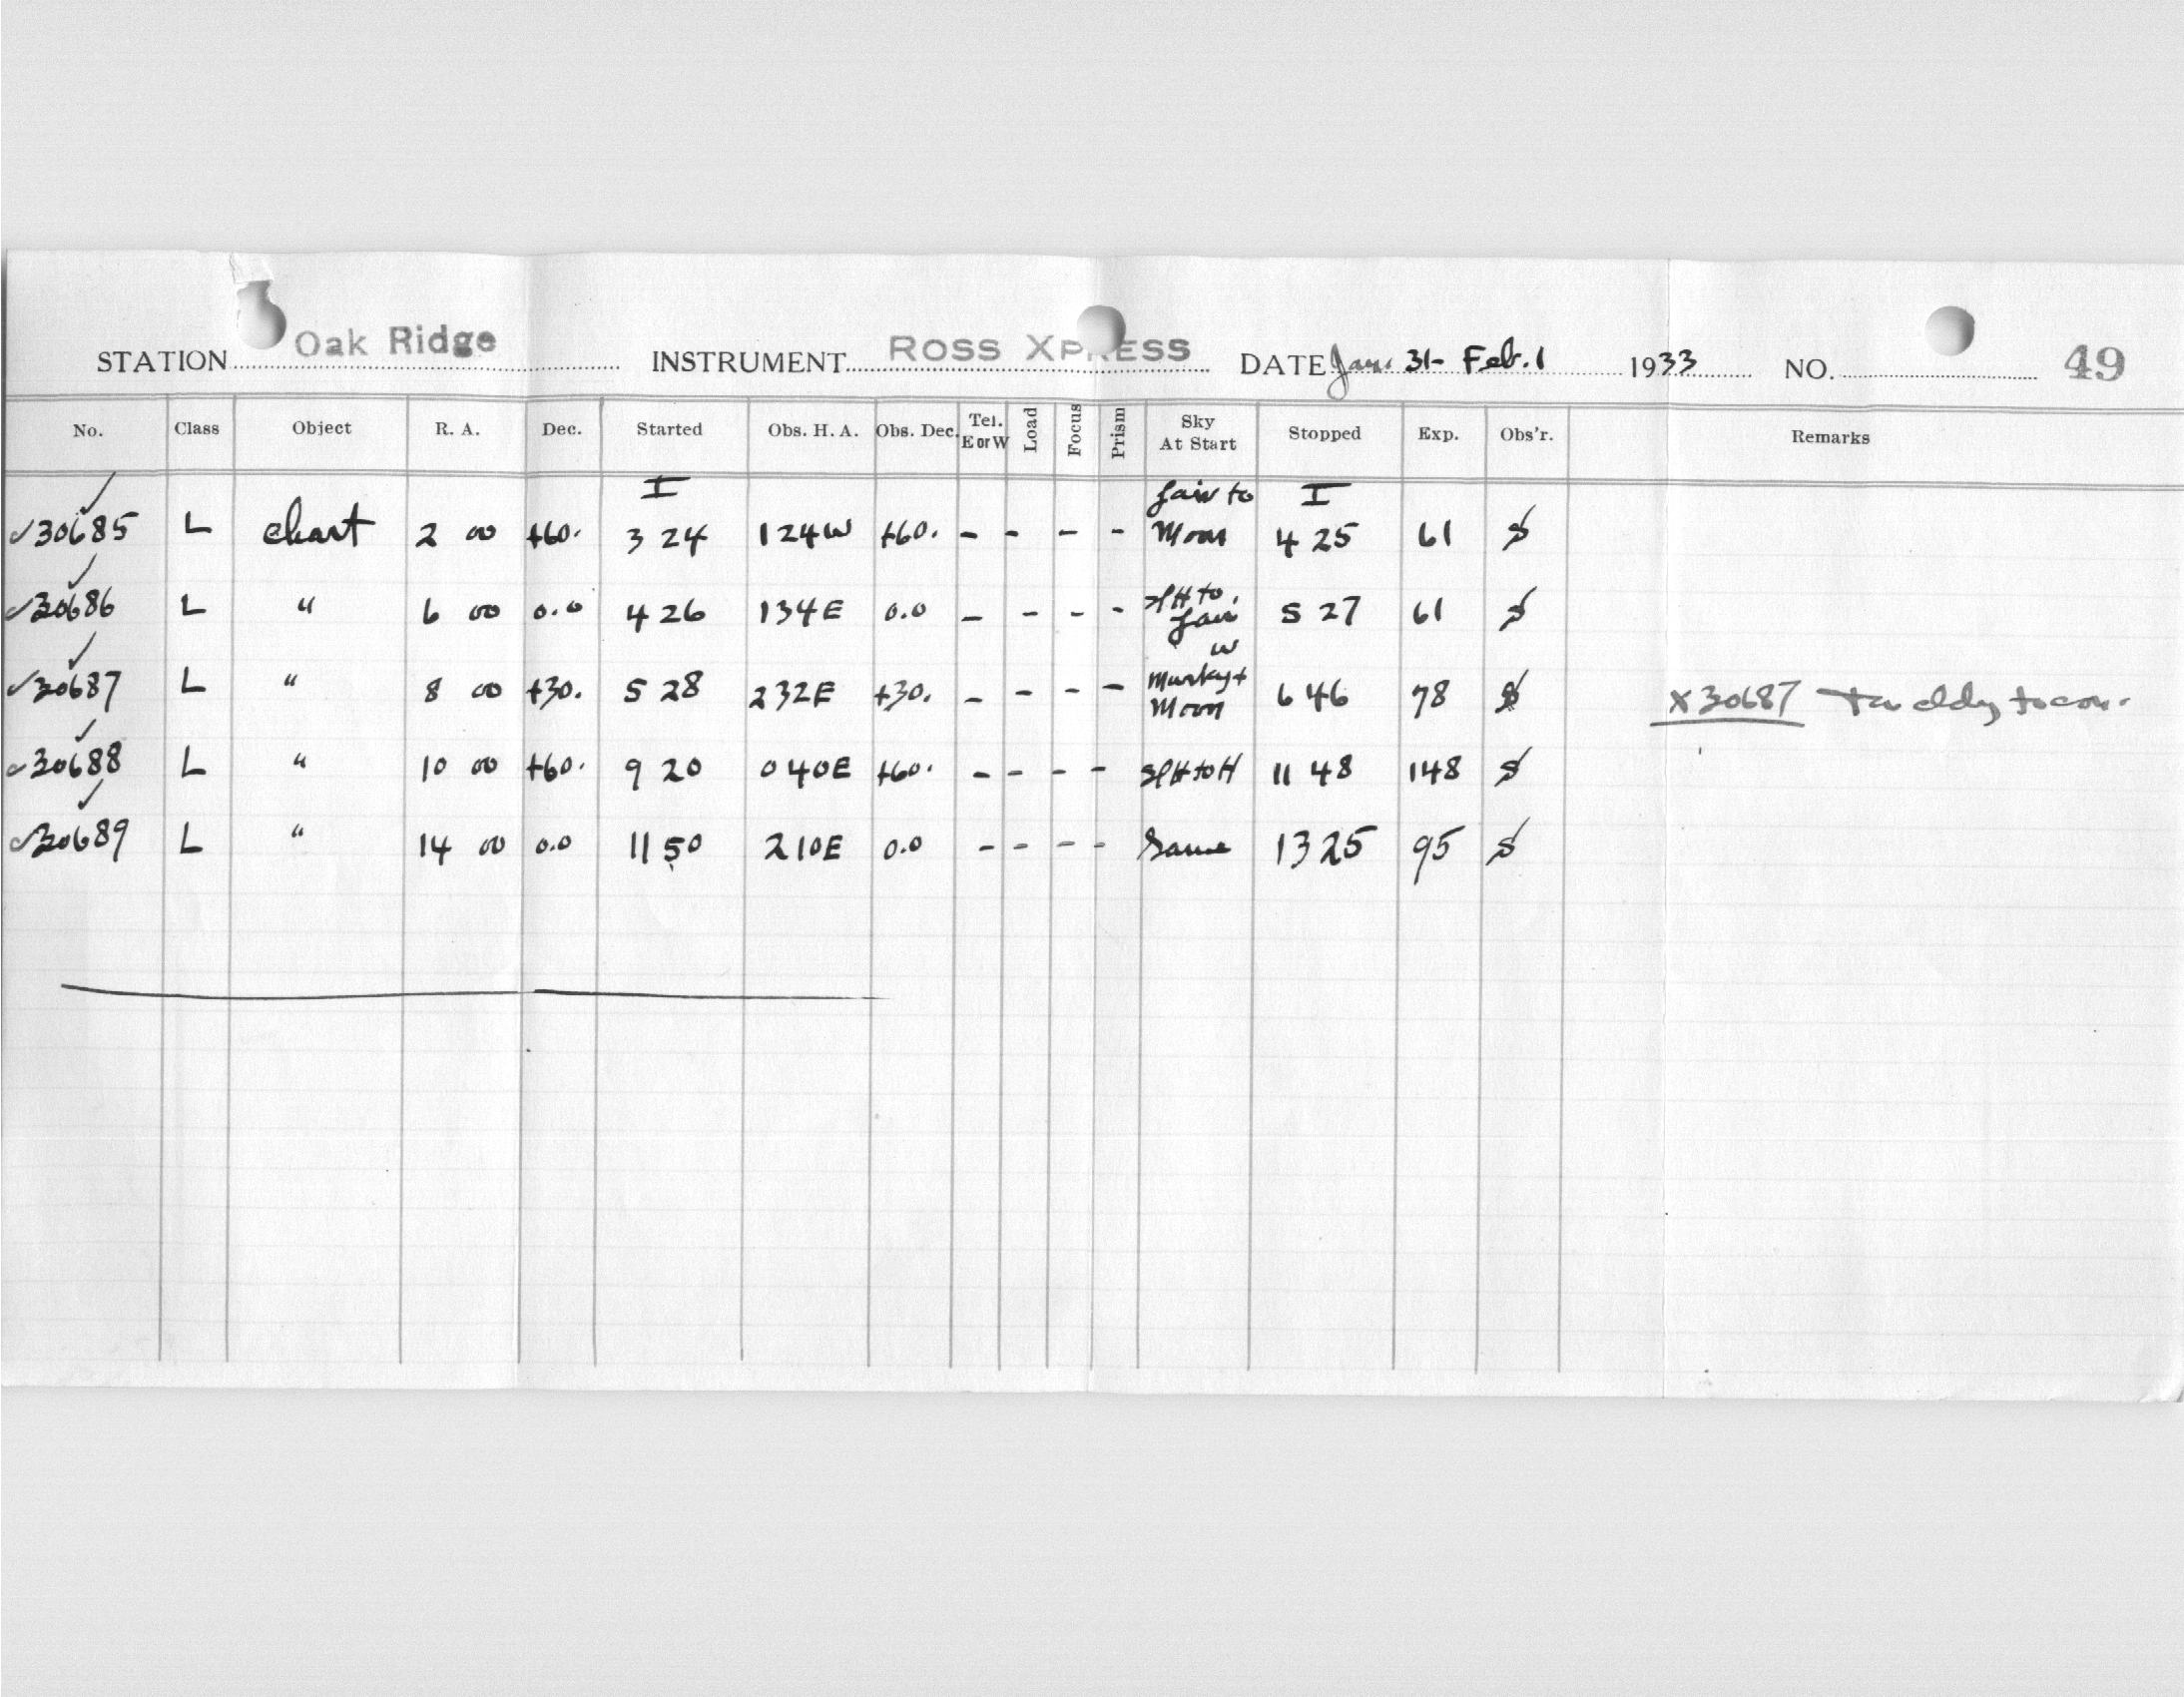 STATION Oak Ridge INSTRUMENT ROSS XPRESS DATE Jan. 31- Feb. 1 1933 NO. 49
No. Class Object R. A. Dec. Started Obs. H. A. Obs. Dec. Tel. E or W Load Focus Prism Sky At Start Stopped Exp. Obs'r. Remarks
✓30685 L chart 2 00 +60. I 3 24 1 24 W +60. - - - - fair to Moon I 4 25 61 S
✓30686 L " 6 00 0.0 4 26 1 34 E 0.0 - - - - SPH to fair 5 27 61 S
✓30687 L " 8 00 +30. 5 28 2 32 E +30. - - - - W Murky + Moon 6 46 78 S X30687
✓30688 L " 10 00 +60. 9 20 0 40 E +60. - - - - SPH to H 11 48 148 S
✓30689 L " 14 00 0.0 11 50 2 10 E 0.0 - - - - Same 13 25 95 S